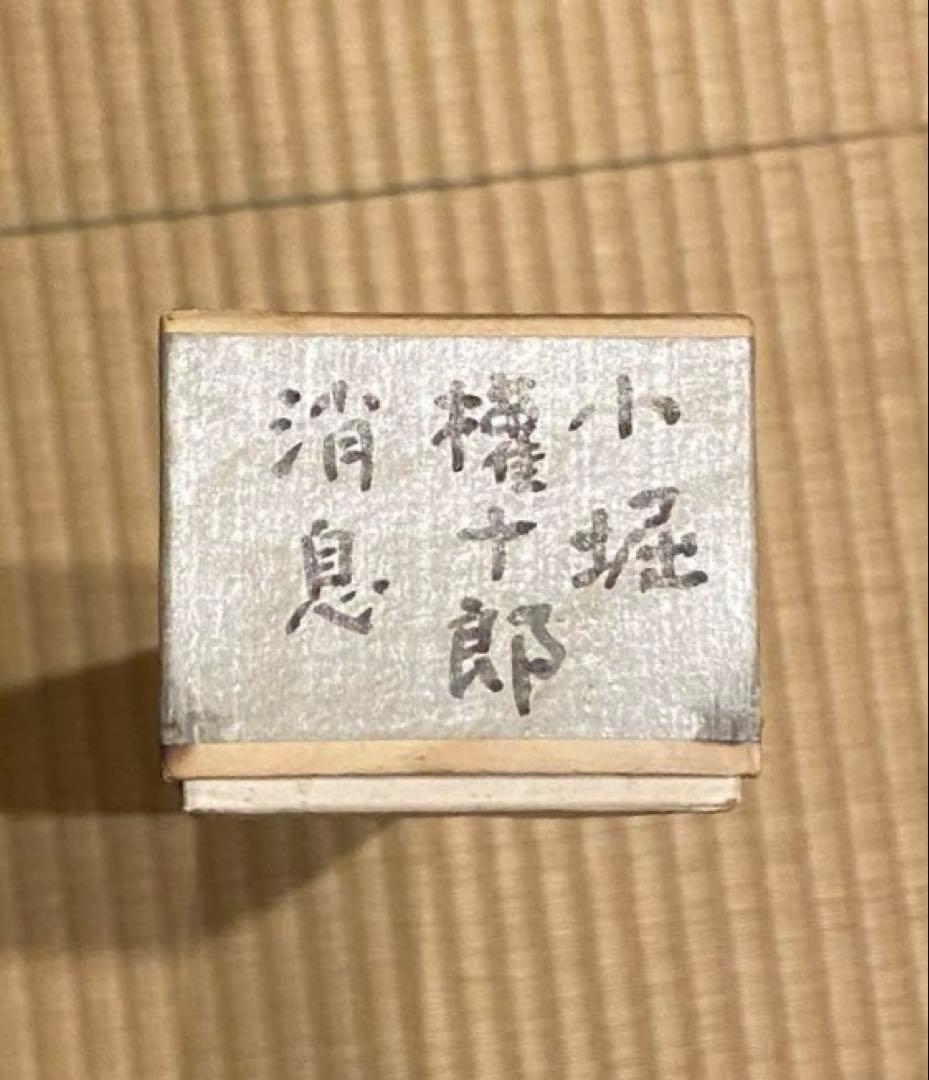 小堀
權十郎
消息